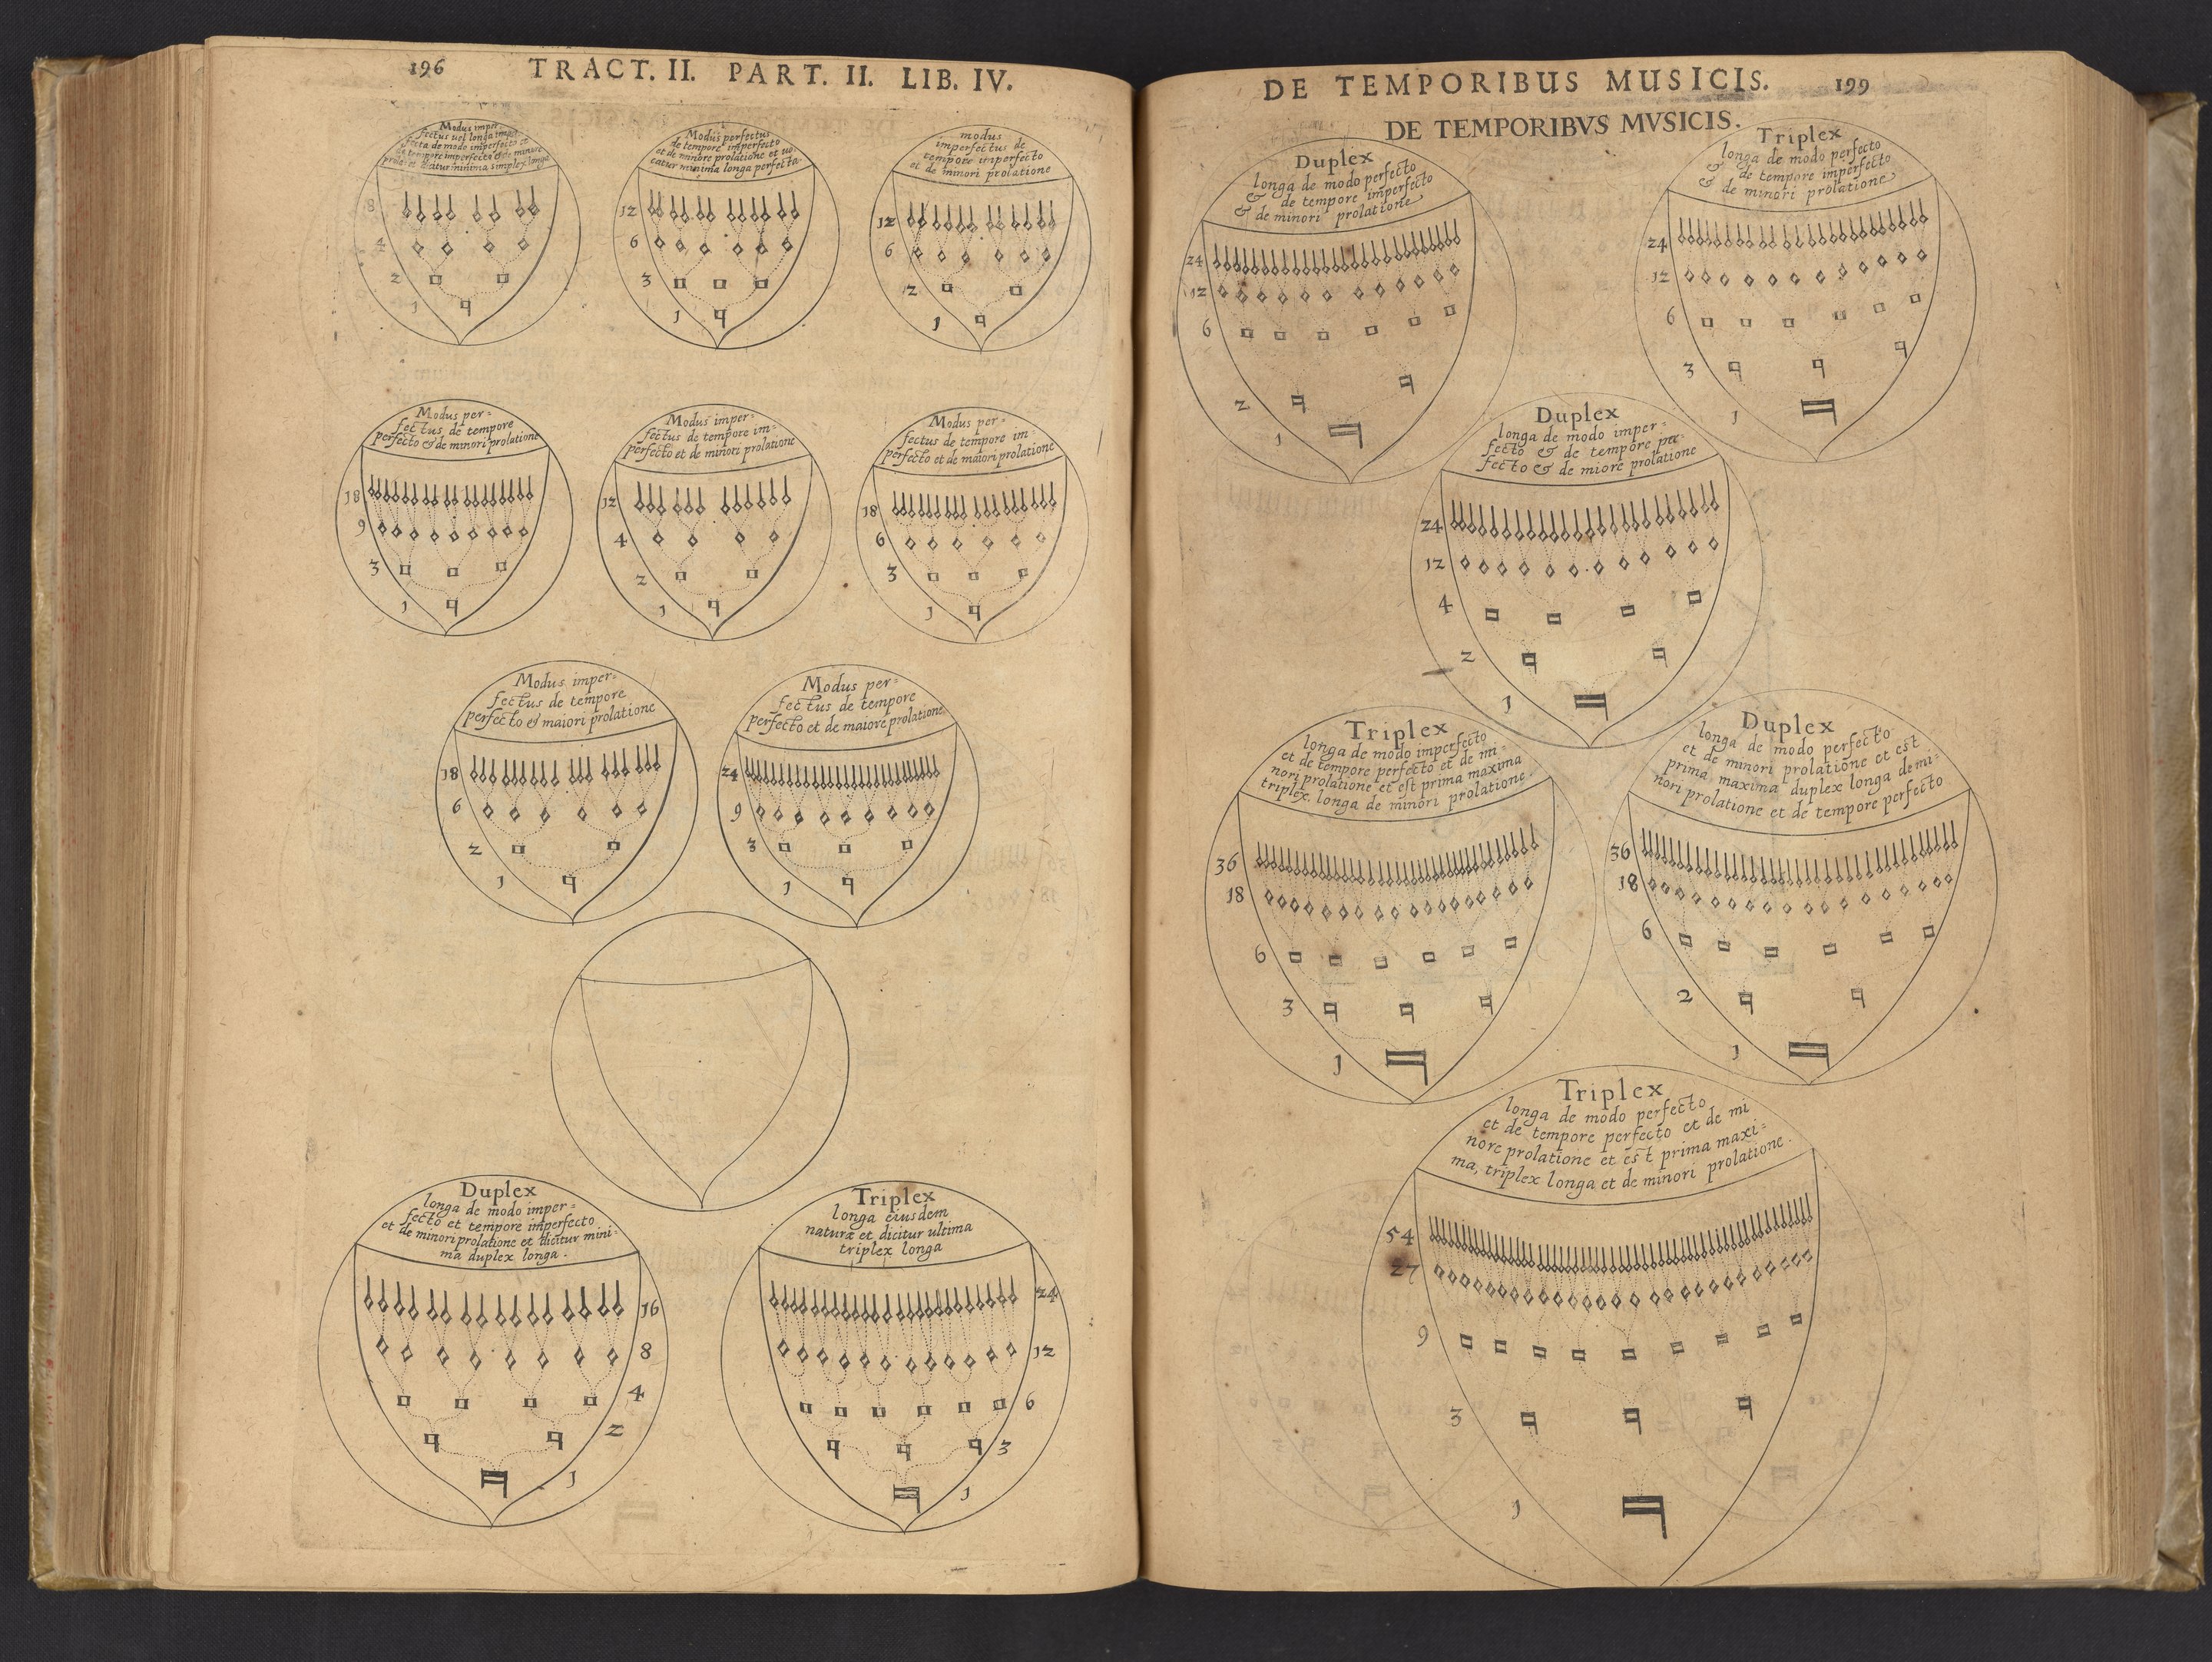 196 TRACT. II. PART. II. LIB. IV.
Modus imper=
fectus vel longa imper
fecta de modo imperfecto et
de tempore imperfecto & de minore
8
4
2
1
Modus perfectus
de tempore imperfecto
et de minore prolatione et uo
catur minima longa perfecta
12
6
3
1
modus
imperfectus de
tempore imperfecto
et de minori prolatione
12
6
2
1
Modus per=
fectus de tempore
perfecto & de minori prolatione
18
9
3
1
Modus imper=
fectus de tempore im=
perfecto et de minori prolatione
12
4
2
1
Modus per=
fectus de tempore im=
perfecto et de maiori prolatione
18
6
3
1
Modus imper=
fectus de tempore
perfecto & maiori prolatione
18
6
2
1
Modus per=
fectus de tempore
perfecto et de maiore prolatione
24
9
3
1
Duplex
longa de modo imper=
fecto et tempore imperfecto
et de minori prolatione et dicitur mini=
ma duplex longa.
16
8
4
2
1
Triplex
longa eiusdem
naturæ et dicitur ultima
triplex longa
24
12
6
3
1
DE TEMPORIBUS MUSICIS. 199
DE TEMPORIBVS MVSICIS.
Duplex
longa de modo perfecto
& de tempore imperfecto
& de minori prolatione
24
12
6
2
1
Triplex
longa de modo perfecto
& de tempore imperfecto
& de minori prolatione
24
12
6
3
1
Duplex
longa de modo imper=
fecto & de tempore per=
fecto & de miore prolatione
24
12
4
2
1
Triplex
longa de modo imperfecto
et de tempore perfecto et de mi=
nori prolatione et est prima maxima
triplex longa de minori prolatione.
36
18
6
3
1
Duplex
longa de modo perfecto
et de minori prolatione et est
prima maxima duplex longa de mi=
nori prolatione et de tempore perfecto
36
18
6
2
1
Triplex
longa de modo perfecto
et de tempore perfecto et de mi
nore prolatione et est prima maxi=
ma, triplex longa et de minori prolatione.
54
27
9
3
1